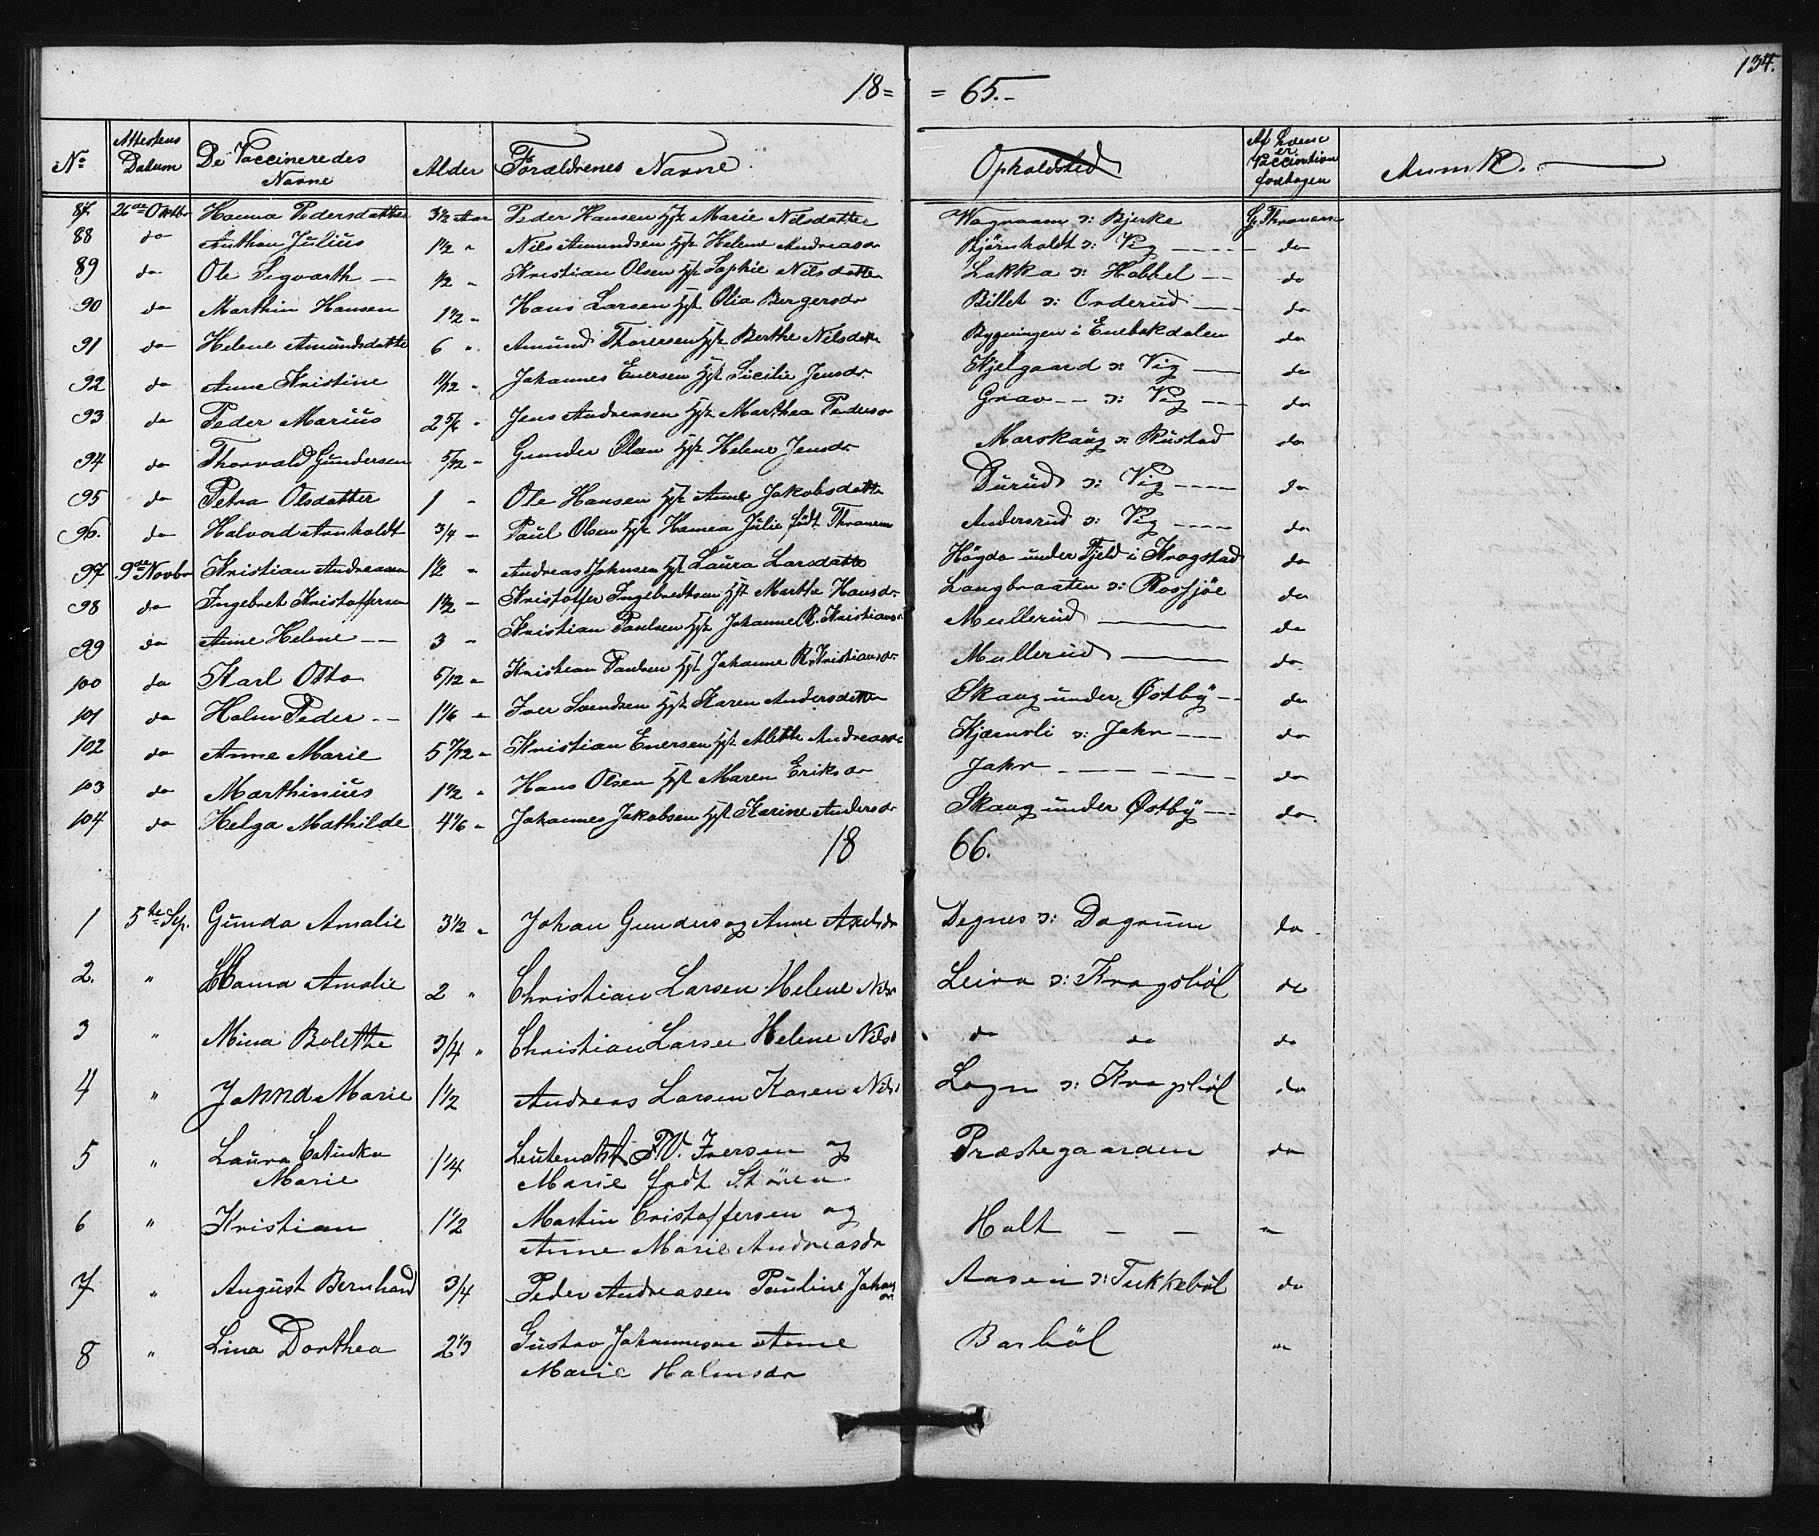 134.
18 = = 65.-
No Attestens Datum De Vaccineredes Navne Alder Forældrenes Navne Opholdsted Af hvem er Vaccination foretagen Anmk.
87. 26de Oktbr Hanna Pedersdatter 3½ Aar Peder Hansen Hst Marie Nilsdatter Vognraam s: Bjerke G. Thranem
88 do Anthon Julius 1½ " Nils Amundsen Hst Helene Andreasdr Bjørnholdt s: Vig do
89 do Ole Sigvarth ½ " Kristian Olsen Hst Sophie Nilsdatter Lakka s: Hobbel do
90 do Marthin Hansen 1½ " Hans Larsen Hst Olia Bergersdr Billet s: Orderud do
91 do Helene Amundsdatter 6 " Amund Thoresen Hst Berthe Nilsdatter Bygningen i Enebakdalen do
92 do Anne Kristine 11/12 " Johannes Enersen Hst Sicilie Jensdr. Kjelgaard s: Vig do
93 do Peder Marius 2 5/6 " Jens Andreasen Hst Marthea Pedersdr Grav s: Vig do
94 do Thorvald Gundersen 5/12 " Gunder Olsen Hst Helene Jensdr. Morskaug s: Rustad do
95 do Petra Olsdatter 1 " Ole Hansen Hst Anne Jakobsdatter Durud s: Vig do
96. do Halvord Arnholdt 3/4 " Paul Olsen Hst Hanna Julie født Thranem Andersrud s: Vig do
97 9de Novbr Kristian Andreasen 1½ " Andreas Johnsen Hst Laura Larsdatter Høgda under Fjeld i Krogstad do
98 do Ingebret Kristoffersen 1½ " Kristoffer Ingebredtsen Hst Marthe Hansdr. Langbraaten s: Rosfjøe do
99 do Anne Helene 3 " Kristian Paulsen Hst Johanne R. Kristiansdr Mullerud do
100 do Karl Otto 5/12 " Kristian Paulsen Hst Johanne R. Kristiansdr Mullerud do
101 do Holm Peder 1 1/6 " Iver Svendsen Hst Karen Andersdatter Skaug under Østby do
102 do Anne Marie 5 7/12 " Kristian Enersen Hst Alette Andreasdr Kjærnsli s: Jahr do
103 do Marthinius 1½ " Hans Olsen Hst Maren Eriksdr Jahr do
104 do Helga Mathilde 4 1/6 " Johannes Jakobsen Hst Karine Andersdr Skaug under Østby do
18 66.
1 5te Sp. Gunda Amalie 3½ " Johan Gunders og Anne Axelsdr Degnes s: Dagrum do
2. " Hanna Amalie 2 " Christian Larsen Helene Nilsdr Leira s: Kragsbøl do
3 " Mina Bolethe 3/4 " Christian Larsen Helene Nilsd do do do
4 " Johnna Marie 1½ Andreas Larsen Karen Nilsd Logn s: Kragsbøl do
5 " Laura Catinka 1¼ Leutenant F.W. Iversen og Præstegaarden do
Marie Marie født Støren
6 " Kristian 1½ Martin Cristoffersen og Holt "
Anne Marie Andreasdr
7 " August Bernhard 3/4 Peder Andreasen Pauline Johan Aasen s: Tukkebøl do
dr.
8 " Lina Dorthea 2⅓ Gustav Johannesen Anne Barbøl "
Marie Holmsdr